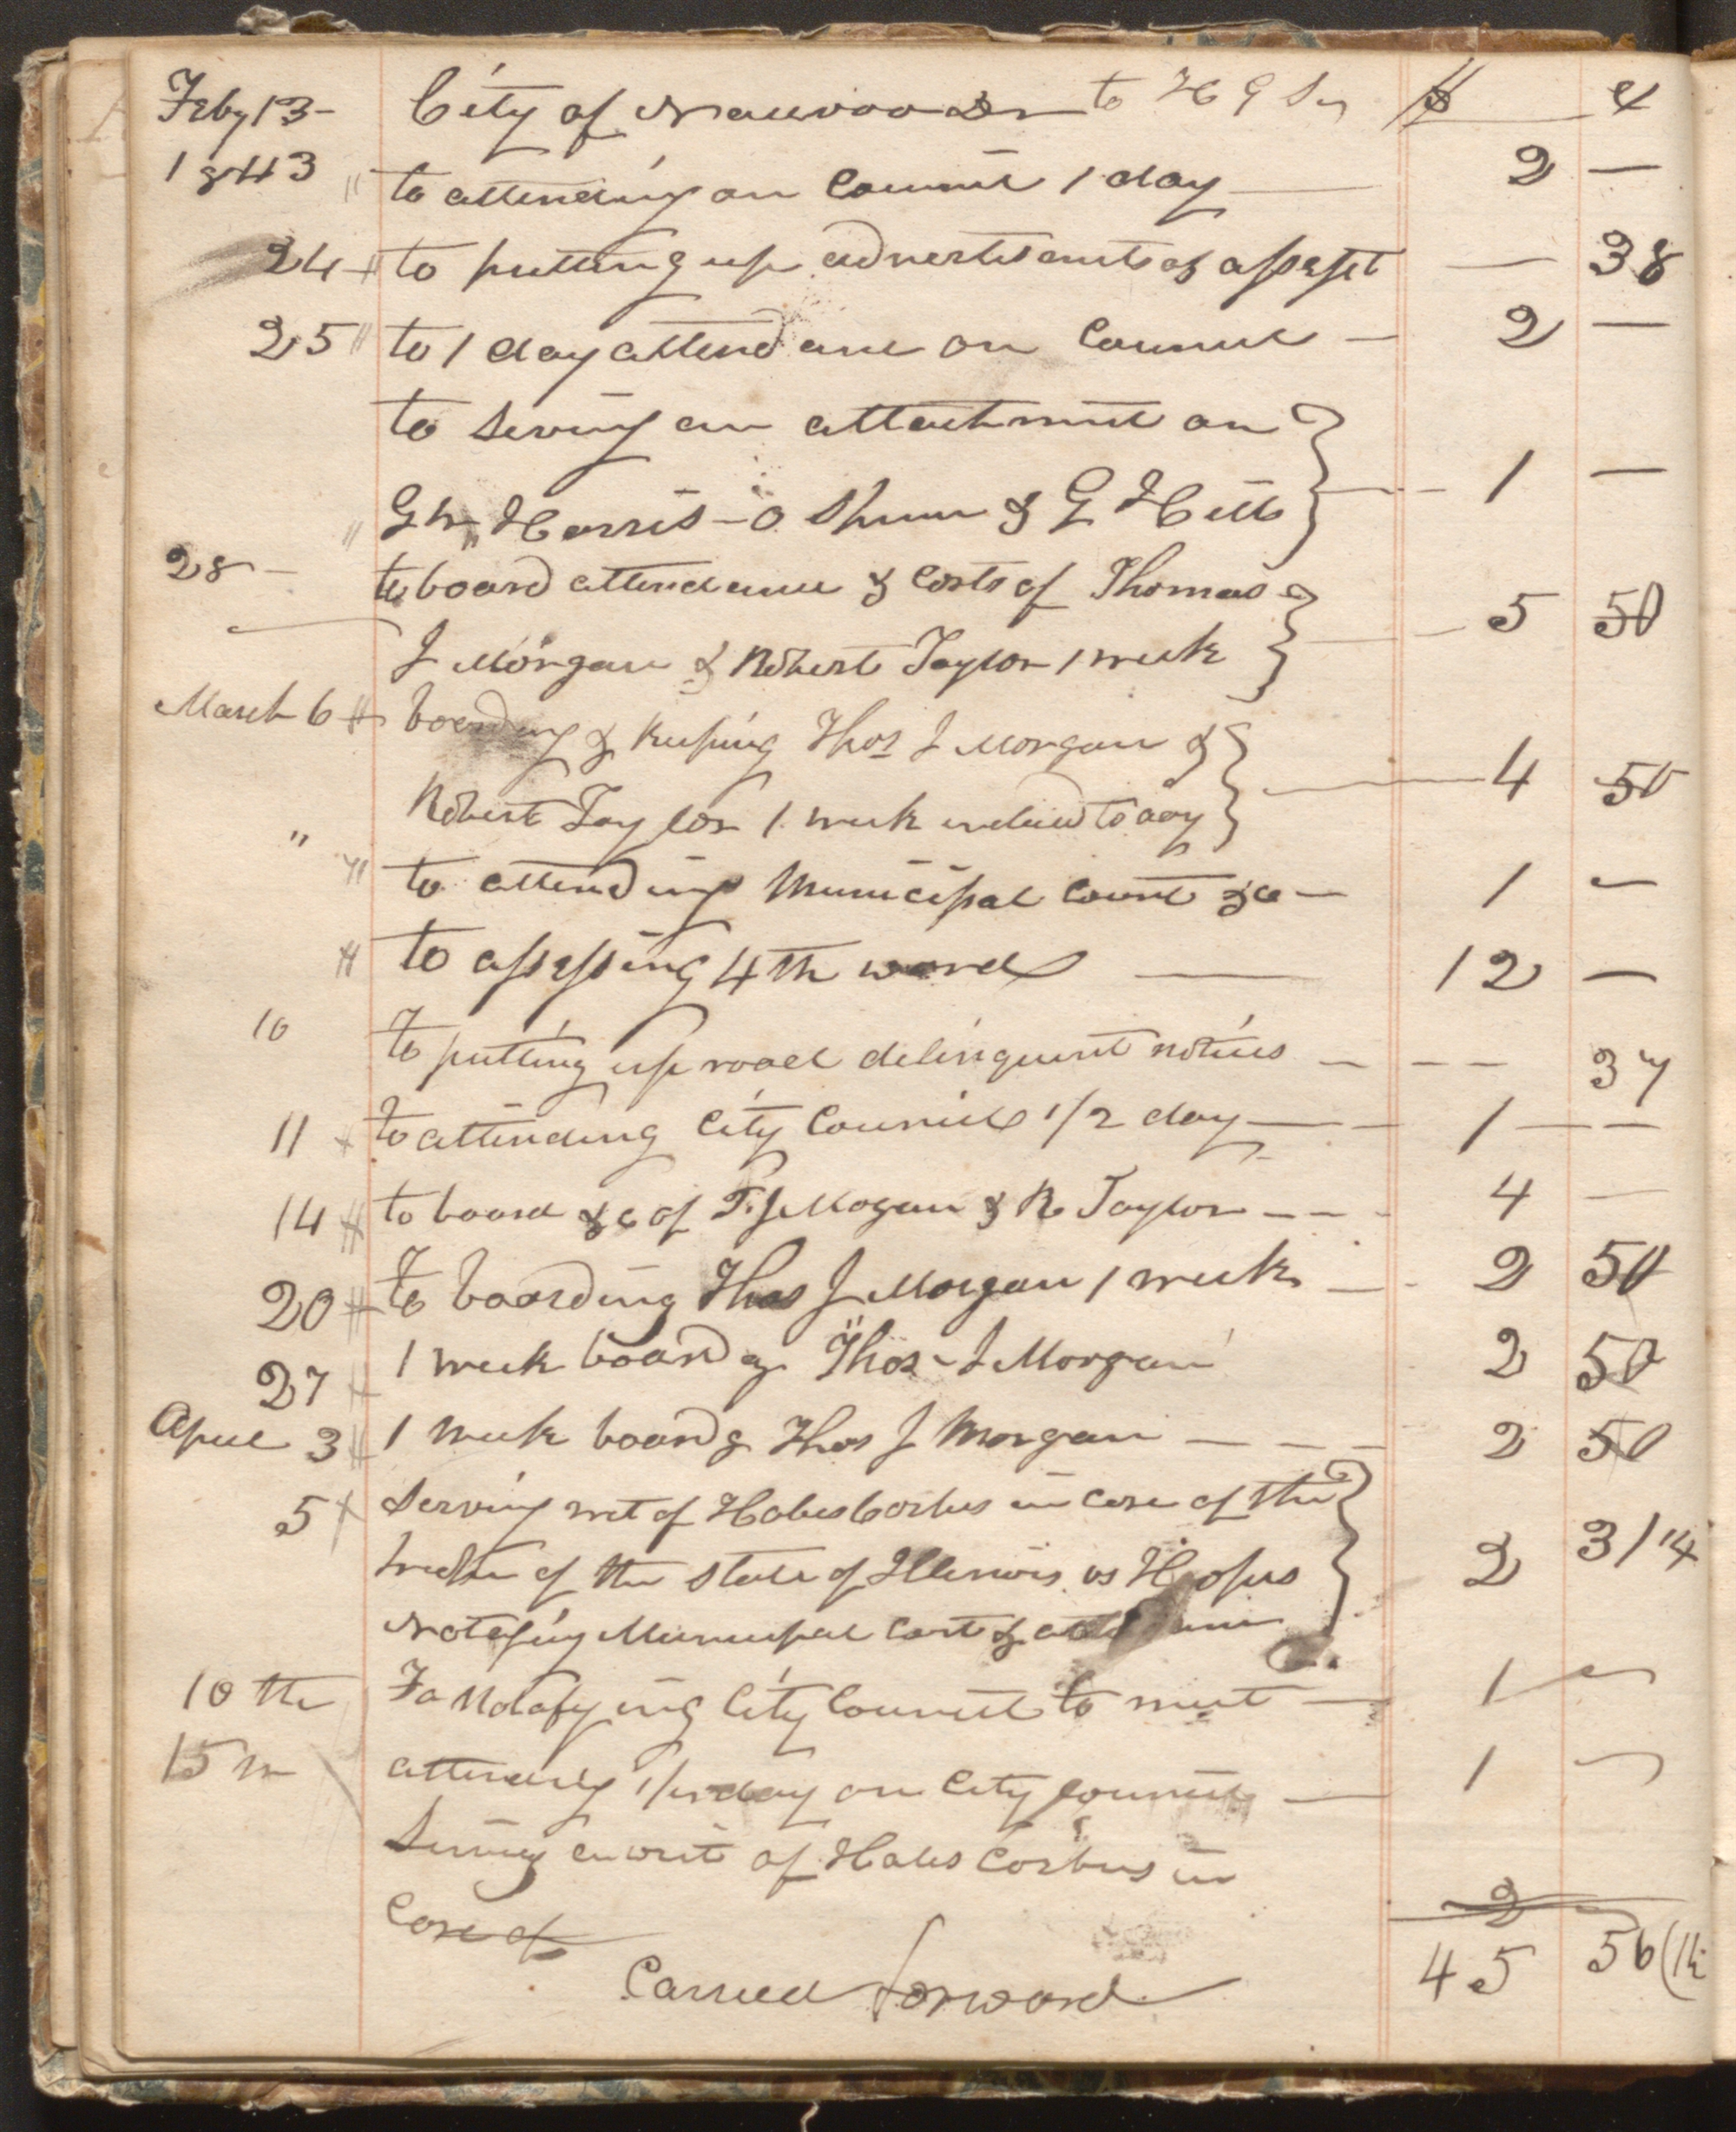 Feby 13- City of Nauvoo Dr to H G S $ c
1843 " to attending on Council 1 day — 2 —
24 to putting up advertisemts of assesst — 38
25 " to 1 day attendance on Council — 2 —
to serving an attachment on
" G W Harris - O Spencer & G Hills 1 —
28 - to board attendance & costs of Thomas
J Morgan & Robert Taylor 1 week 5 50
March 6 boarding & keeping Thos J Morgan &
Robert Taylor 1 week to day 4 50
" " to attending Municipal Court &c — 1 —
" to assessing 4th ward — 12 —
10 To putting up road delinquent notices — — — 37
11 to attending City Council 1/2 day — 1 — —
14 to board &c of T. J Mogan & R Taylor — — 4 —
20 To boarding Thos J Morgan 1 week — 2 50
27 1 week boardg Thos J Morgan 2 50
April 3 1 week boardg Thos J Morgan — — — 2 50
5 Serving writ of Habes Corpus in case of the
of the State of Illinois vs Hoopes 2 31/4
Notefying Municipal Cort &
10 th To Notafying City Council to meet — 1 —
15 attending 1/2 day on City Council — 1 —
Serving a writ of Habes Corbus in
Case of 2
Carried forward 45 56 1/4